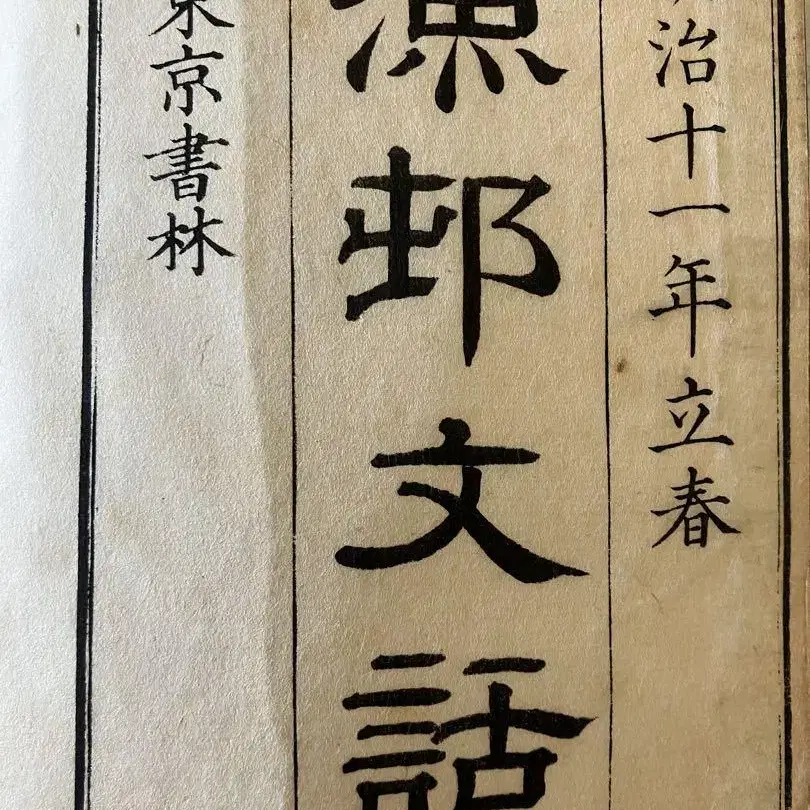 治十一年立春
漁邨文話
東京書林